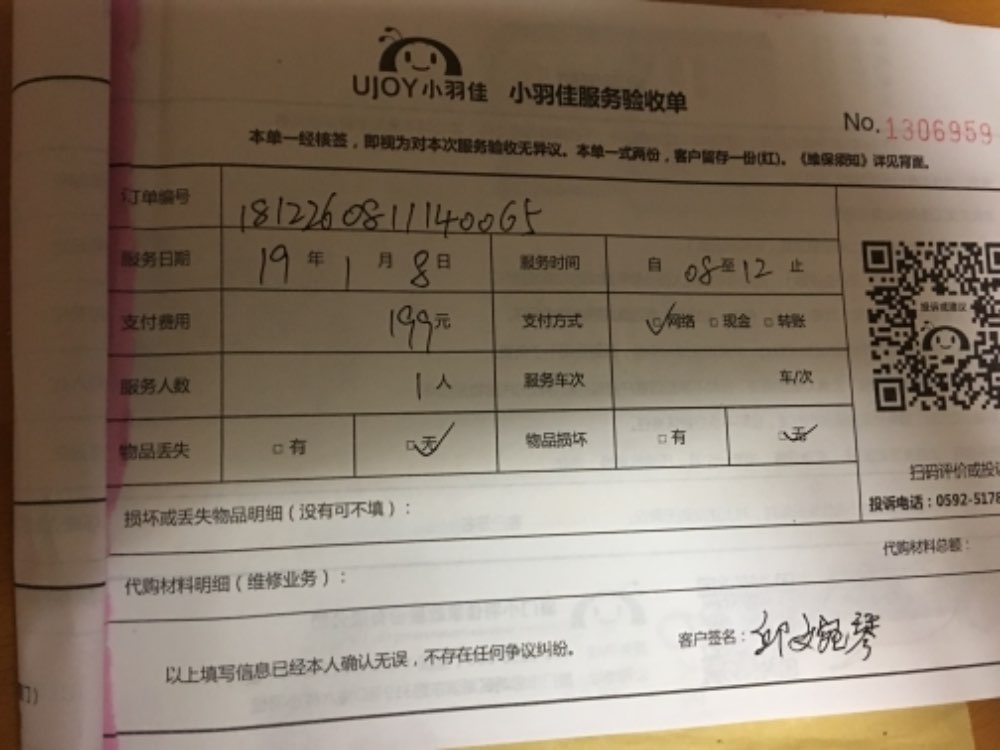 UJOY小羽佳 小羽佳服务验收单
No.1306959
本单一经核签，即视为对本次服务验收无异议。本单一式两份，客户留存一份(红)。《维保须知》详见背面。
订单编号 18122608111400G5
服务日期 19 年 1 月 8 日 服务时间 自 08 至 12 止
支付费用 199 元 支付方式 ☑网络 □现金 □转账
服务人数 1 人 服务车次 车/次
物品丢失 □有 ☑无 物品损坏 □有 ☑无
投诉或建议
扫码评价或投诉
投诉电话：0592-5178
损坏或丢失物品明细（没有可不填）：
代购材料明细（维修业务）： 代购材料总额：
以上填写信息已经本人确认无误，不存在任何争议纠纷。 客户签名：邱婉琴